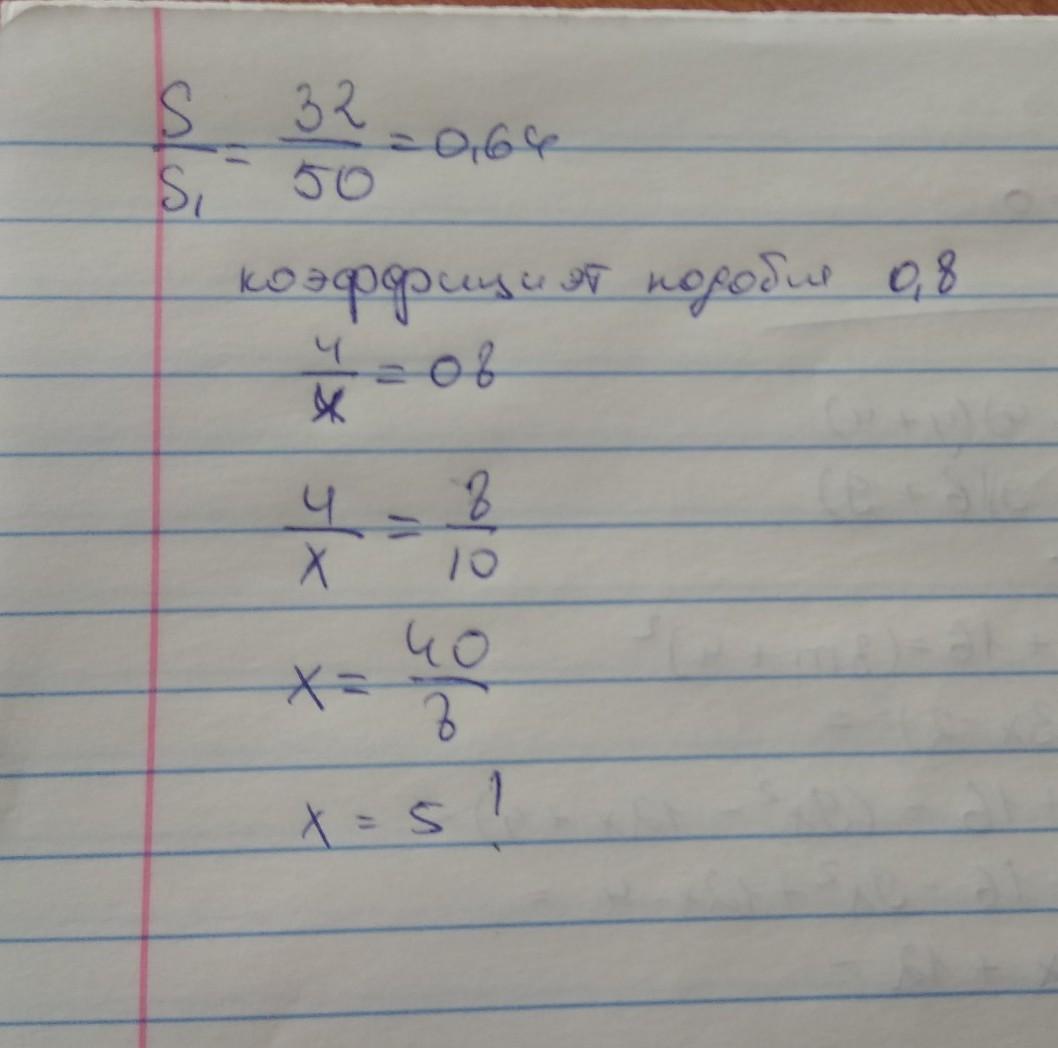 S/S₁ = 32/50 = 0,64
коэффициэт подобия 0,8
4/x = 08
4/x = 8/10
x = 40/8
x = 5 !